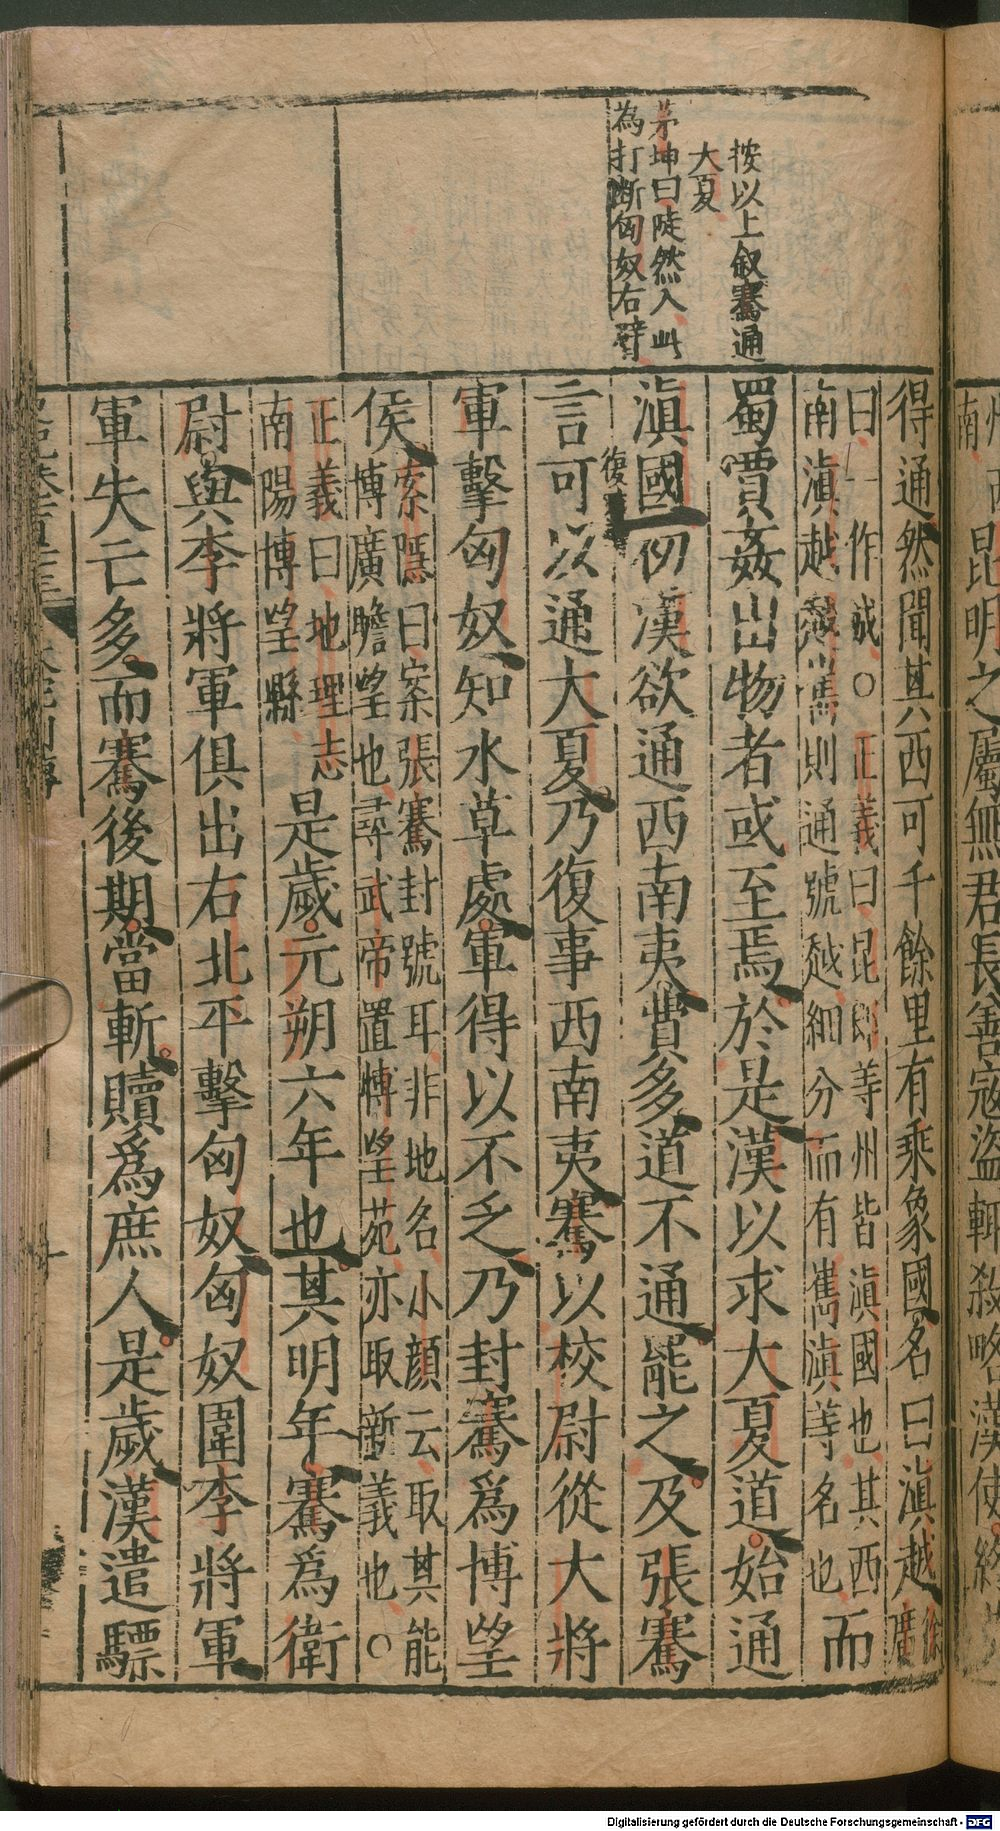 按以上叙騫通
大夏
茅坤曰陡然入此
為打斷匈奴右臂
得通然聞其西可千餘里有乘象國名曰滇越徐廣
曰一作城○正義曰昆郎等州皆滇國也其西
南滇越越嶲則通號越細分而有嶲滇等名也而
蜀賈姦出物者或至焉於是漢以求大夏道始通
滇國初漢欲通西南夷費多道不通罷之及張騫
復事
言可以通大夏乃復事西南夷騫以校尉從大將
軍擊匈奴知水草處軍得以不乏乃封騫爲博望
侯索隱曰案張騫封號耳非地名小顏云取其能
博廣瞻望也尋武帝置博望苑亦取斯義也○
正義曰地理志
南陽博望縣
是歲元朔六年也其明年騫爲衛
尉與李將軍俱出右北平擊匈奴匈奴圍李將軍
軍失亡多而騫後期當斬贖爲庶人是歲漢遣驃
昆明之屬無君長善寇盜輒殺略漢使終
Digitalisierung gefördert durch die Deutsche Forschungsgemeinschaft - DFG